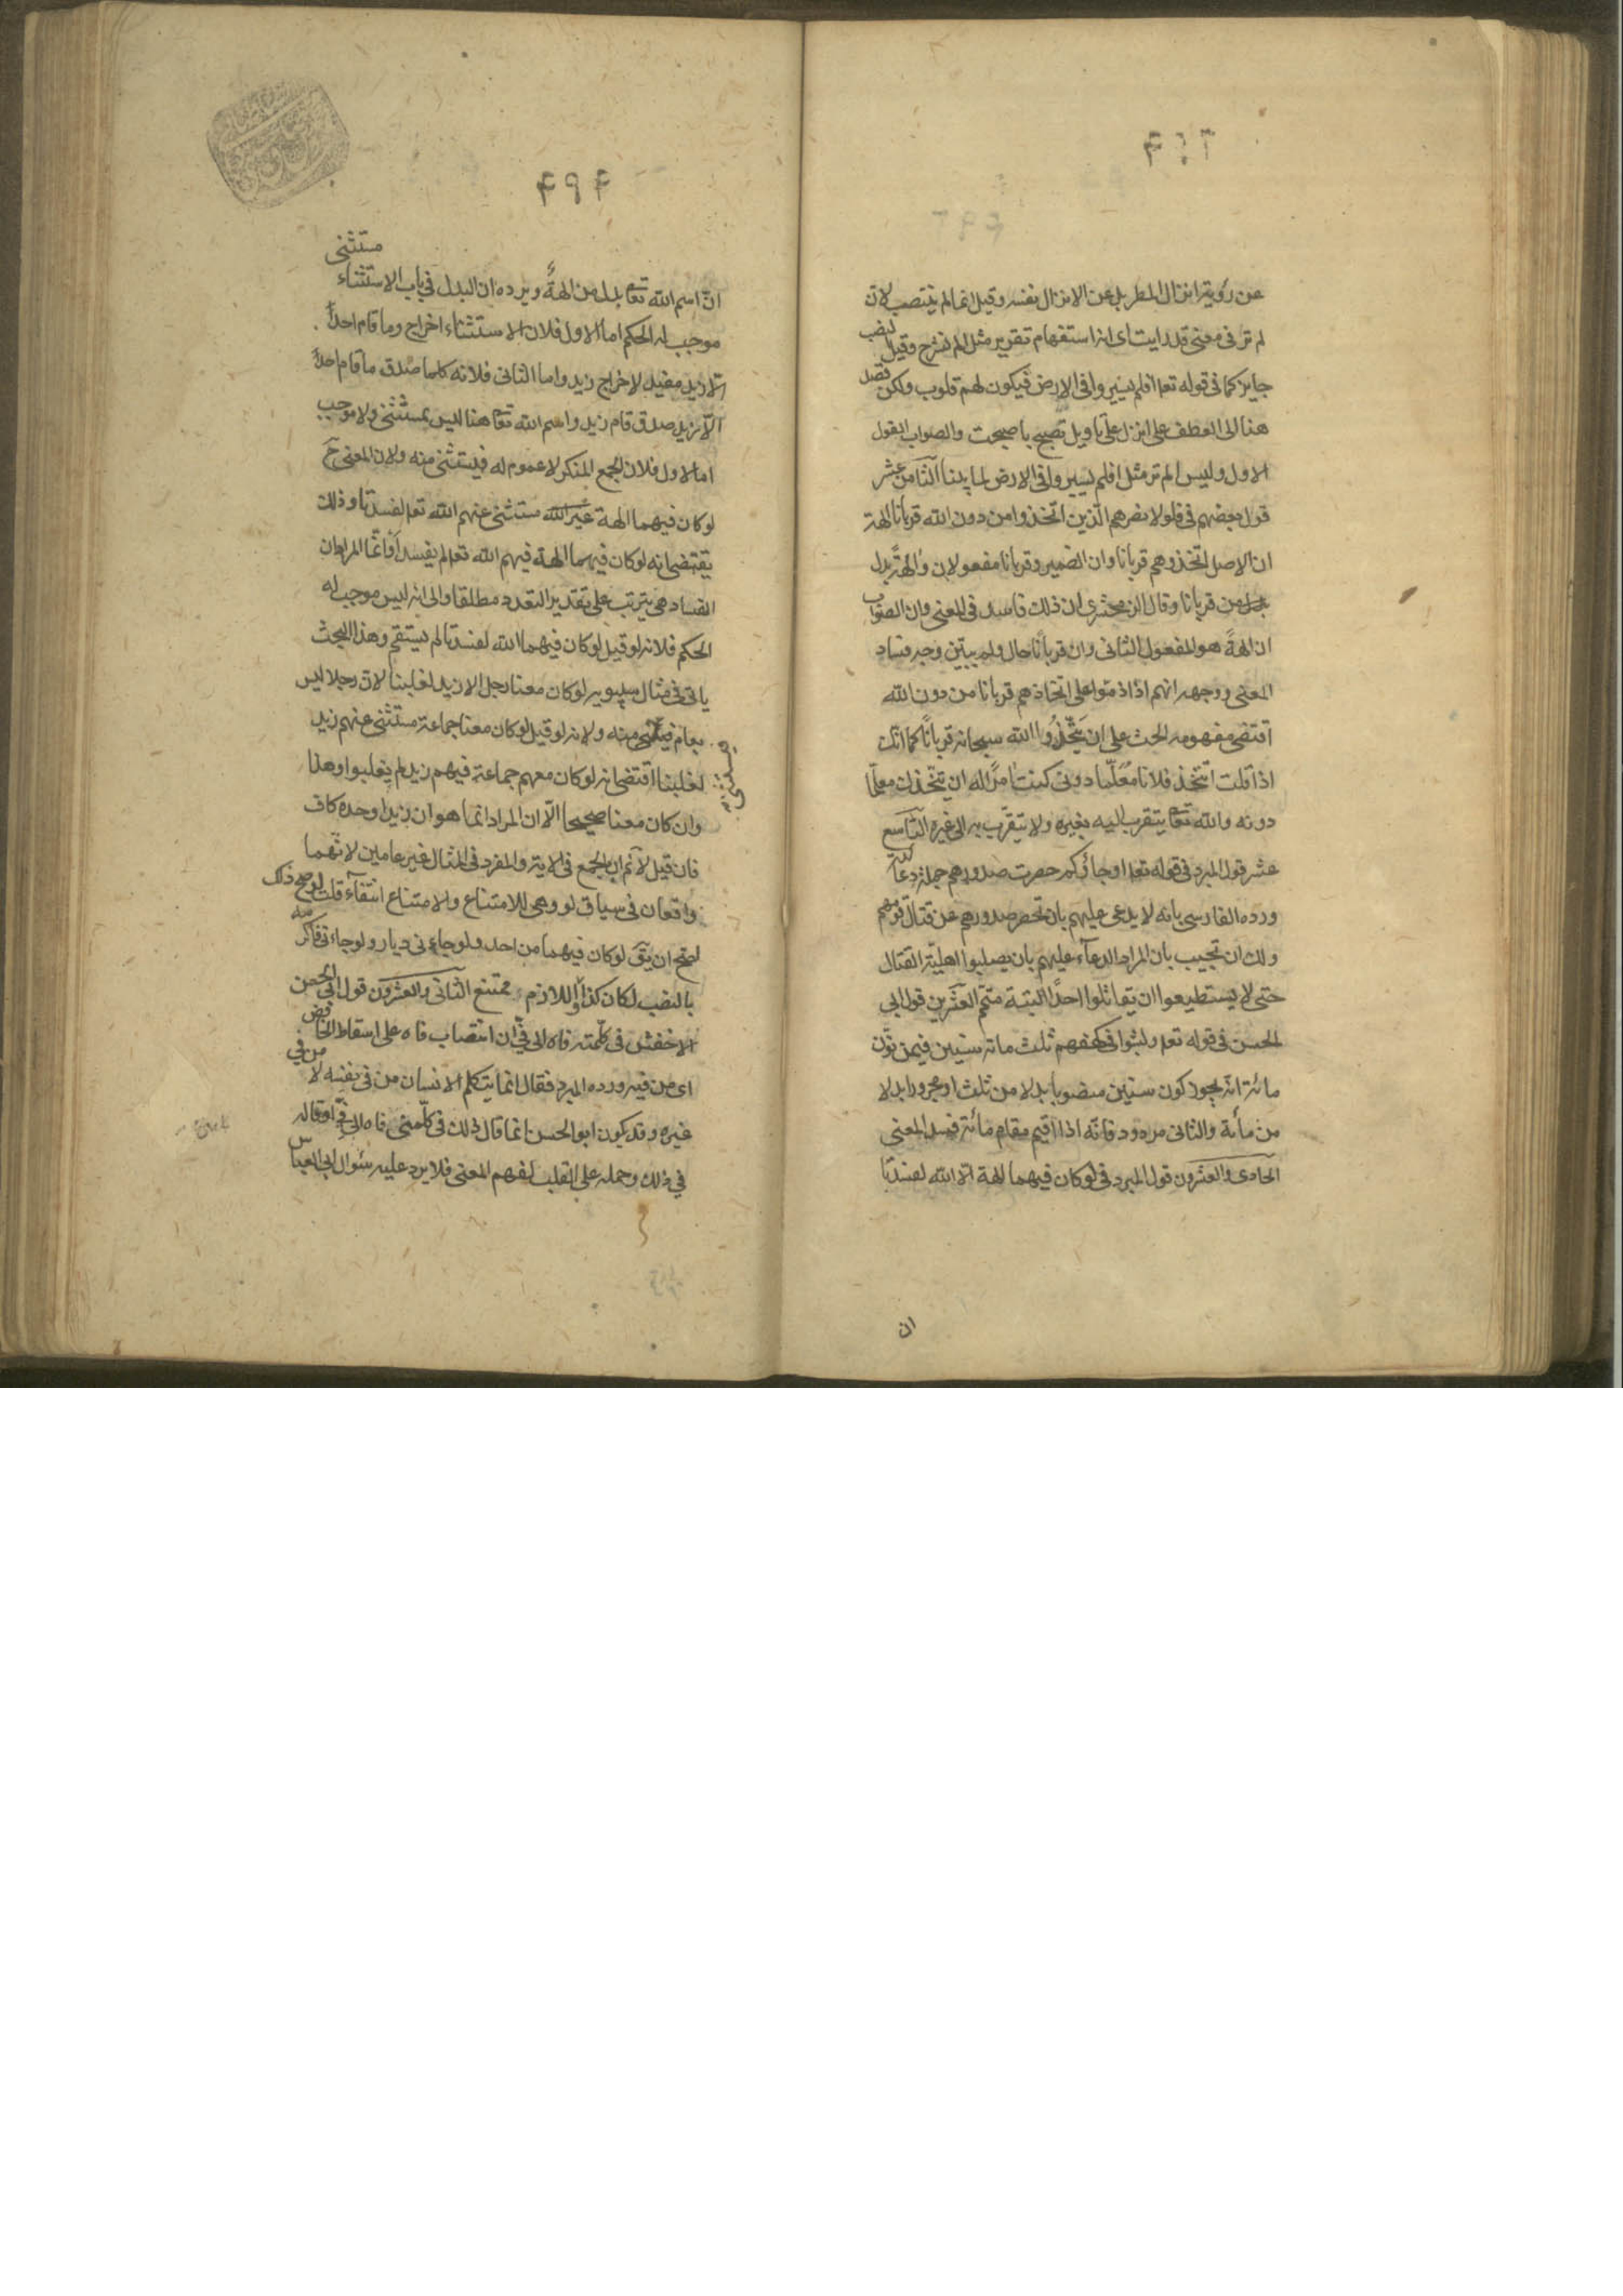 عن رؤية انزال المطر بل عن الانزال نفسه وقيل انما لم ينتصب لان
لم تر فى معنى قد رايت اى انه استفهام تقرير مثل الم نشرح وقيل النصب
جايز كما فى قوله تعا افلم يسيروا فى الارض فيكون لهم قلوب ولكن قصد
هنا الى العطف على انزل على تاويل تصبح باصبحت والصواب القول
الاول وليس الم تر مثل افلم يسيروا فى الارض لما بينا الثامن عشر
قول بعضهم فى فلولا نصرهم الذين اتخذوا من دون الله قربانا الهة
ان الاصل اتخذوهم قربانا وان الضمير وقربانا مفعولان والهةً بدل
بدل من قربانا وقال الزمخشرى ان ذلك فاسد فى المعنى وان الصواب
ان الهةً هو المفعول الثانى وان قربانًا حال ولم يبيّن وجه فساد
المعنى ووجهه انهم اذا ذموا على اتخاذهم قربانا من دون الله
اقتضى مفهومه الحث على ان يتّخذُوا الله سبحانه قربانًا كما انك
اذا قلت اتتخذ فلانا مُعَلّما دونى كنت امرًا له ان يتّخذك معلّما
دونه والله تعا يتقرب اليه بغيره ولا يتقرب به الى غيره التاسع
عشر قول المبرد فى قوله تعا او جاؤكم حصرت صدورهم جملة دعائية
ورده الفارسى بانه لا يدعى عليهم بان تحصر صدورهم عن قتال قومهم
ولك ان تجيب بان المراد الدعآء عليهم بان يصلبوا اهلية القتال
حتى لا يستطيعوا ان يقاتلوا احدًا البتة متمّم العشرين قول ابى
الحسن فى قوله تعا ولبثوا فى كهفهم ثلث مائة سنين فيمن نوّن
مائة انه يجوز كون سنين منصوبا بدلا من ثلث او مجرورا بدلا
من مأئة والثانى مردود فانّه اذا اقيم مقام مائة فسد المعنى
الحادى والعشرون قول المبرد فى لو كان فيهما الهة الا الله لفسدتا
ان
۴۹۴
انّ اسم الله تعا بدل من الهةٌ ويرده ان البدل فى باب الاستثناء مستثنى
موجب له الحكم اما الاول فلان الاستثناء اخراج وما قام احدٌ
الا زيد مفيد لاخراج زيد واما الثانى فلانه كلما صدق ما قام احدٌ
الّا زيد صدق قام زيد واسم الله تعا هنا ليس بمستثنى ولا موجب
اما الاول فلان الجمع المنكر لا عموم له فيستثنى منه ولان المعنى ح
لو كان فيهما الهة غير الله مستثنى عنهم الله تعا لفسدتا وذلك
يقتضى انه لو كان فيهما الهة فيهم الله تعا لم يفسدا وانّما المراد ان
الفساد هى يترتب على تقدير التعدد مطلقا والى انه ليس موجب له
الحكم فلانه لو قيل لو كان فيهما الله لفسدتا لم يستقم وهذا البحث
ياتى فى مثال سيبويه لو كان معنا رجل الا زيد لغلبنا لان رجلا ليس
بعام فيستثنى منه ولانه لو قيل لو كان معنا جماعة مستثنى عنهم زيد
لغلبنا اقتضى انه لو كان معهم جماعة فيهم زيد لم يغلبوا وهذا
وان كان معنا صحيحا الّا ان المراد انما هو ان زيدا وحده كاف
فان قيل لا نم ان الجمع فى الاية والمفرد فى المثال غير عامين لانّهما
واقعان فى سياق لو وهى للامتناع والامتناع انتفآء قلت لو صح ذلك
لصح ان يق لو كان فيهما من احد ولو جاءنى ديار ولو جاءنى فاكرمه
بالنصب لكان كذا واللازم ممتنع الثانى والعشرون قول ابى الحسن
الاخفش فى كلمته فاه الى فىّ ان انتصاب فاه على اسقاط الخافض
اى من فيه ورده المبرد فقال انما يتكلم الانسان من فى نفسه لا من فى
غيره وقد يكون ابو الحسن انما قال ذلك فى كلّمنى فاه الى فىّ او قاله
فى ذلك وحمله على القلب لفهم المعنى فلا يرد عليه سؤال ابى العباس